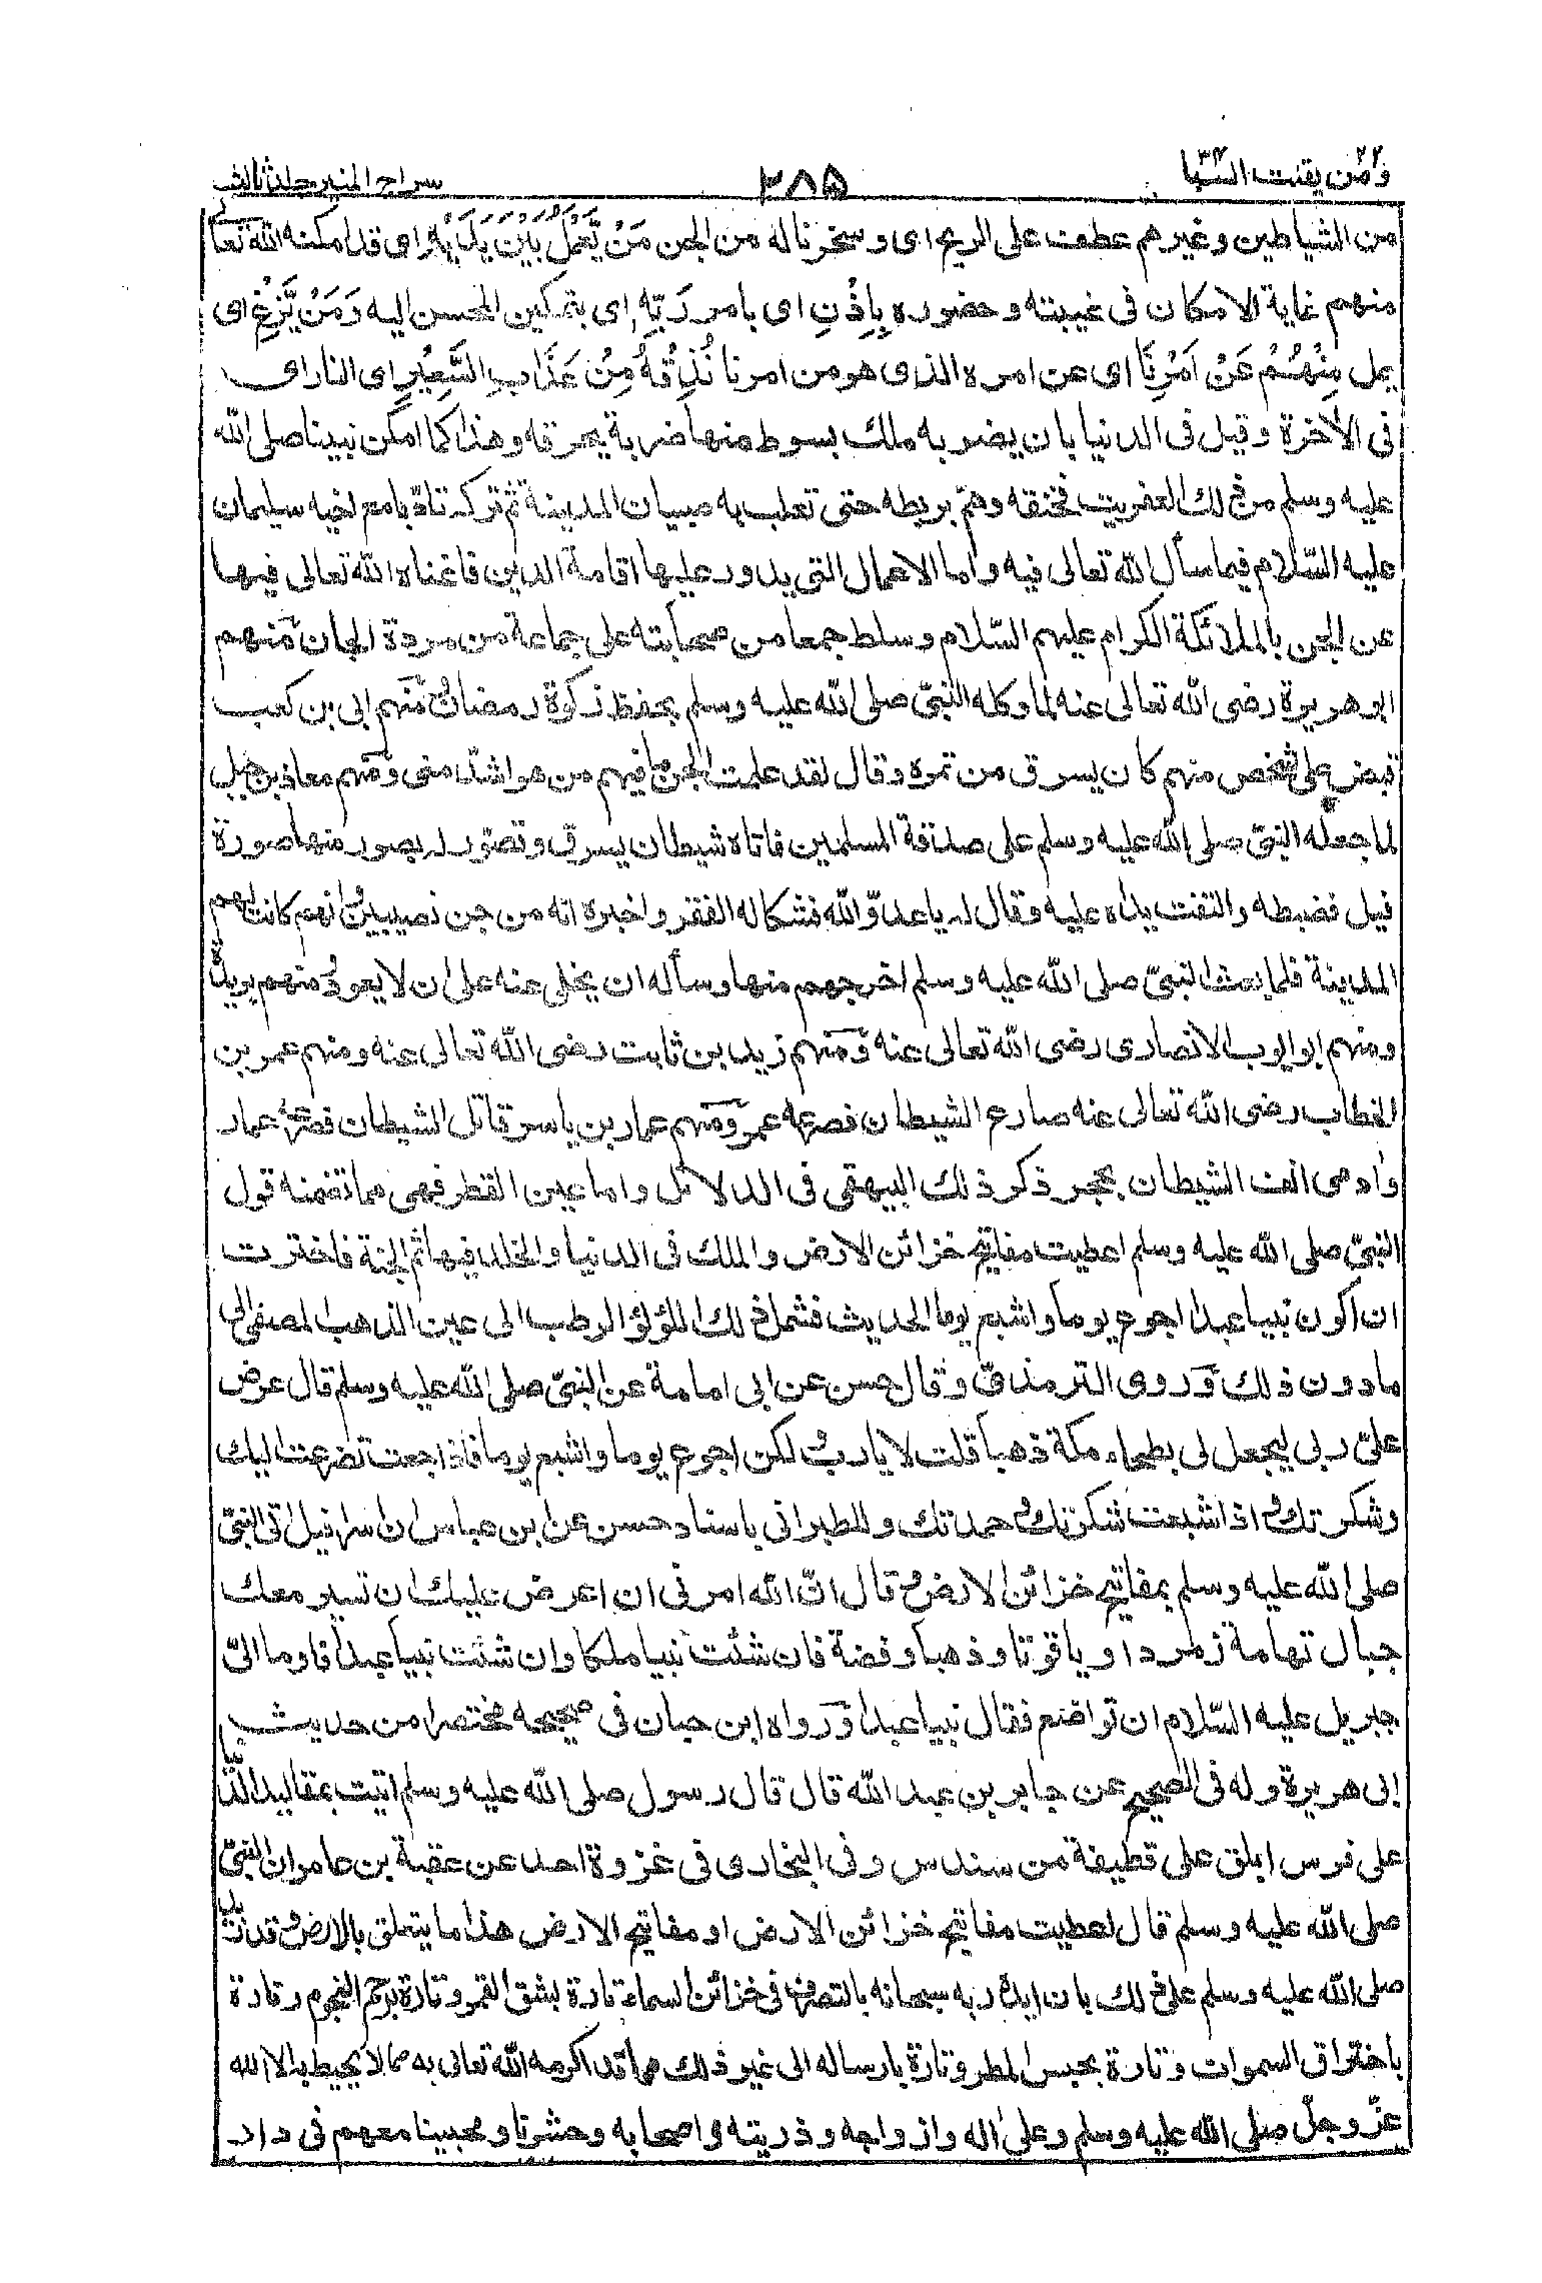 ومن يقنت ٢٢ السبا ٣٤
٢٨٥
سراج المنير جلد ثالث
من الشياطين وغيرهم عطف على الريح اى وسخرنا له من الجن مَنْ يَّعْمَلُ بَيْنَ يَدَيْهِ اى قد امكنه الله تعالى
منهم غاية الامكان فى غيبته وحضوره بِاِذْنِ اى بامر رَبِّهٖ اى بتمكين المحسن اليه وَمَنْ يَّزِغْ اى
يمل مِنْهُمْ عَنْ اَمْرِنَا اى عن امره الذى هو من امرنا نُذِقْهُ مِنْ عَذَابِ السَّعِيْرِ اى النار اى
فى الاٰخرة وقيل فى الدنيا بان يضربه ملك بسوط منها ضربة يحرقه وهذا كما امكن نبينا صلى الله
عليه وسلم من ذلك العفريت فخنقه وهمّ بربطه حتى تلعب به صبيان المدينة ثم تركه تادّبا مع اخيه سليمان
عليه السّلام فيما سأل الله تعالى فيه واما الاعمال التى يدور عليها اقامة الدين فاغناه الله تعالى فيها
عن الجن بالملائكة الكرام عليهم السّلام وسلط جمعا من صحابته على جماعة من مردة الجان منهم
ابو هريرة رضى الله تعالى عنه لما وكله النبىّ صلى الله عليه وسلم بحفظ زكوة رمضان ومنهم ابى بن كعب
قبض على شخص منهم كان يسرق من تمره وقال لقد علمت الجن ما فيهم من هو اشدّ منى ومنهم معاذ بن جبل
لما جعله النبىّ صلى الله عليه وسلم على صدقة المسلمين فاتاه شيطان يسرق وتصوّر له بصور منها صورة
فيل فضبطه والتفت يداه عليه وقال له يا عدوّ الله فشكا له الفقر واخبره انه من جن نصيبين وانهم كانت لهم
المدينة فلما بعث النبىّ صلى الله عليه وسلم اخرجهم منها وسأله ان يخلى عنه على ان لا يعود ومنهم بريدة
ومنهم ابو ايوب الانصارى رضى الله تعالى عنه ومنهم زيد بن ثابت رضى الله تعالى عنه ومنهم عمر بن
الخطاب رضى الله تعالى عنه صارع الشيطان فصرعه عمر ومنهم عمار بن ياسر قاتل الشيطان فصرعه عمار
وادمى انف الشيطان بحجر ذكر ذلك البيهقى فى الدلائل واما عين القطر فهى مما تضمنه قول
النبىّ صلى الله عليه وسلم اعطيت مفاتيح خزائن الارض والملك فى الدنيا والخلد فيها ثم الجنة فاخترت
ان اكون نبيا عبدا اجوع يوما واشبع يوما الحديث فشمل ذلك اللؤلؤ الرطب الى عين الذهب المصفى الى
ما دون ذلك وروى الترمذى وقال حسن عن ابى امامة عن النبىّ صلى الله عليه وسلم قال عرض
علىّ ربى ليجعل لى بطحاء مكة ذهبا قلت لا يا رب ولكن اجوع يوما واشبع يوما فاذا جعت تضرعت اليك
وشكرتك واذا شبعت شكرتك وحمدتك وللطبرانى باسناد حسن عن ابن عباس ان اسرافيل اتى النبىّ
صلى الله عليه وسلم بمفاتيح خزائن الارض وقال انّ الله امرنى ان اعرض عليك ان تسير معك
جبال تهامة زمردا وياقوتا وذهبا وفضة فان شئت نبيا ملكا وان شئت نبيا عبدا فاوما الىّ
جبريل عليه السّلام ان تواضع فقال نبيا عبدا ورواه ابن حبان فى صحيحه مختصرا من حديث
ابى هريرة وله فى الصحيح عن جابر بن عبد الله قال قال رسول صلى الله عليه وسلم اتيت بمقاليد الدنيا
على فرس ابلق على قطيفة من سندس وفى البخارى فى غزوة احد عن عقبة بن عامر ان النبىّ
صلى الله عليه وسلم قال اعطيت مفاتيح خزائن الارض او مفاتيح الارض هذا ما يتعلق بالارض وقد زيد
صلى الله عليه وسلم على ذلك بان ايده ربه سبحانه بالتصرف فى خزائن السماء تارة بشق القمر وتارة برجم النجوم وتارة
باختراق السموات وتارة بحبس المطر وتارة بارساله الى غير ذلك مما قد اكرمه الله تعالى به مما لا يحيط به الا الله
عزّ وجلّ صلى الله عليه وسلم وعلىٰ اله وازواجه وذريته واصحابه وحشرنا ومحبينا معهم فى دار